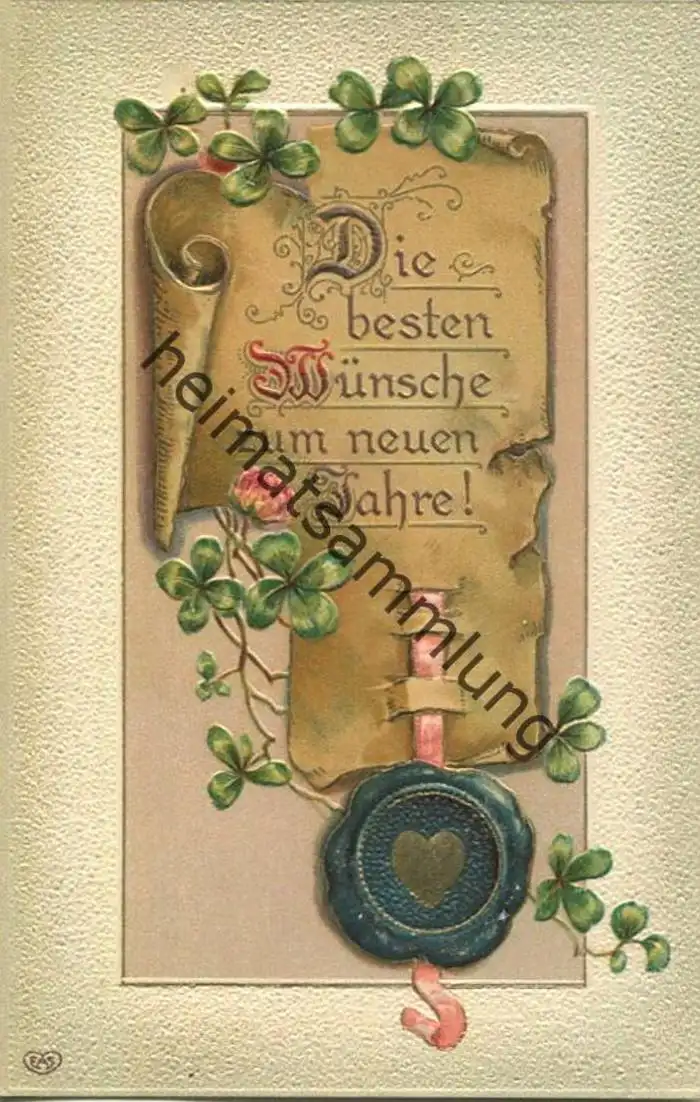 Die
besten
Wünsche
zum neuen
Jahre!
heimatsammlung
EAS